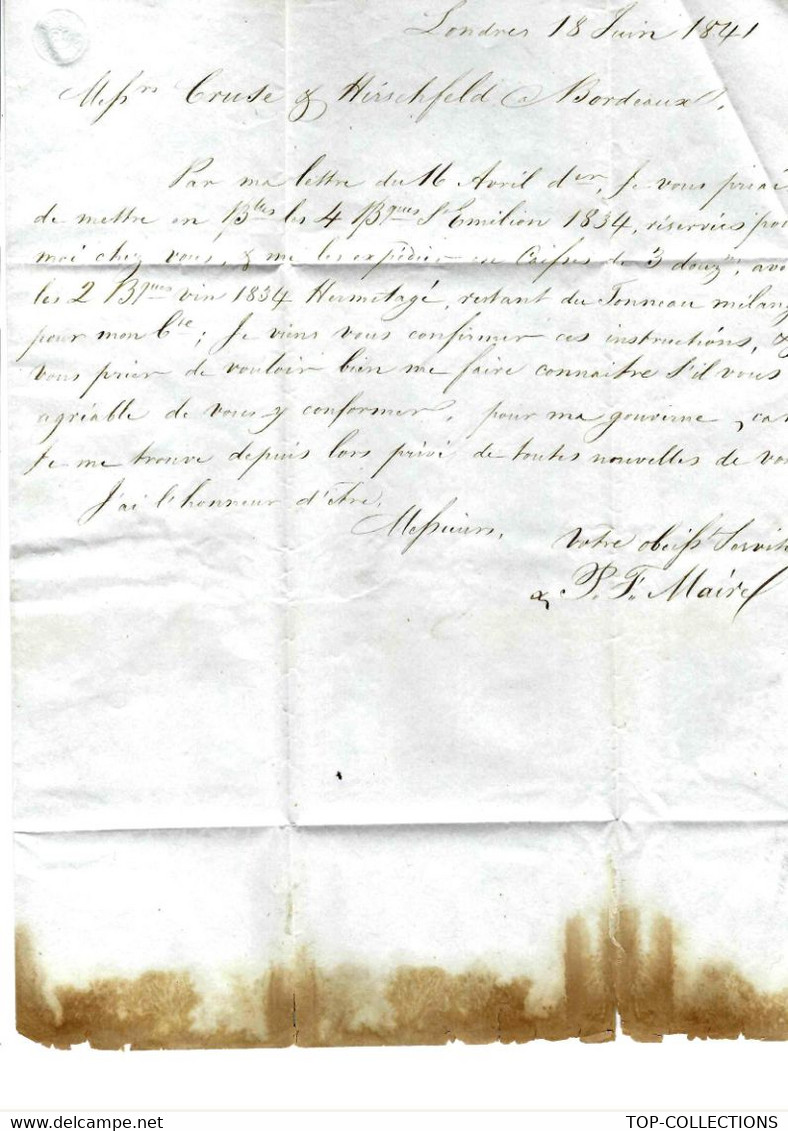 Londres 18 Juin 1841
Messrs Cruse & Hirschfeld à Bordeaux.
Par ma lettre du 16 Avril der, Je vous priai
de mettre en Btles les 4 Bques St Emilion 1834, réservées pou
moi chez vous, & me les expédier en Caisses de 3 douz, ave
les 2 Bques vin 1834 Hermitagé, restant du Tonneau mélang
pour mon Cte; Je viens vous confirmer ces instructions, &
vous prier de vouloir bien me faire connaitre s'il vous
agréable de vous y conformer, pour ma gouverne, car
Je me trouve depuis lors privé de toutes nouvelles de vou
J'ai l'honneur d'être,
Messieurs,
Votre obeisst Servit
P. F. Maire
TOP-COLLECTIONS